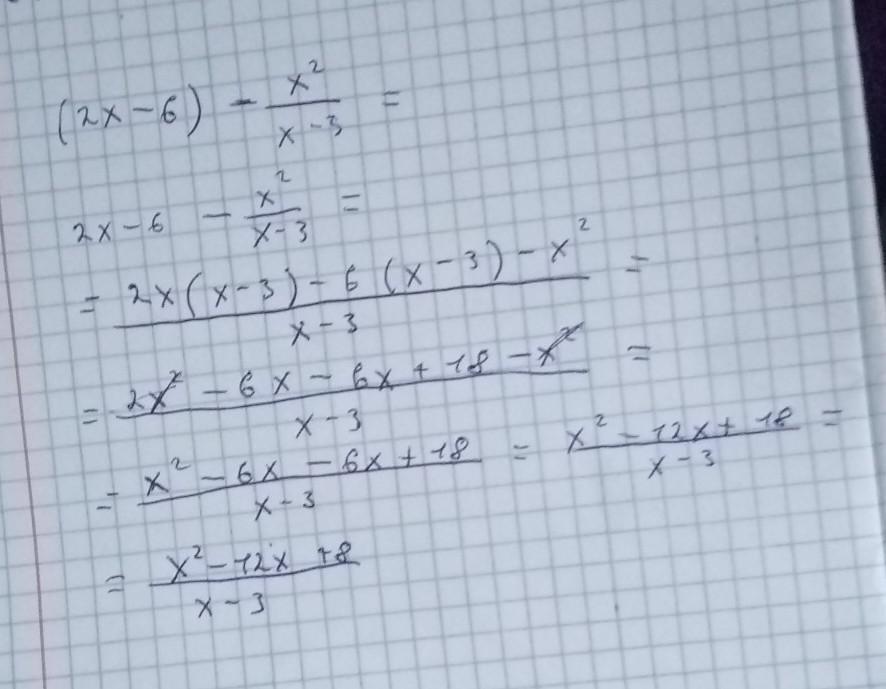 (2x-6) - x²/(x-3) =
2x-6 - x²/(x-3) =
= (2x(x-3)-6(x-3)-x²)/(x-3) =
= (2x²-6x-6x+18-x²)/(x-3) =
= (x²-6x-6x+18)/(x-3) = (x²-12x+18)/(x-3) =
= (x²-12x+8)/(x-3)